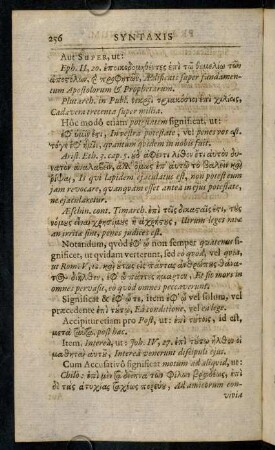 256 SYNTAXIS
Aut SUPER, ut:
Eph. II, 20. ἐποικοδομηθέντες ἐπὶ τῷ θεμελίῳ τῶν
ἀποστόλων, ϗ προφητῶν, Ædificati super fundamen-
tum Apostolorum & Prophetarum.
Plutarch. in Publ. ἐπὶ χιλίοις,
Cadavera trecenta super millia.
Hôc modô etiam potestatem significat, ut:
ἐφ' ὑμῖν ἐστι, In vestra potestate, vel penes vos est.
τόγε ἐφ' ἡμῖν, quantum quidem in nobis fuit.
Arist. Eth. 3. cap. 5.
Is qui lapidem ejaculatus est, non potest eum
jam revocare, quanquam esset antea in ejus potestate,
ne ejacularetur.
Æschin. cont. Timarch. ἐπὶ τοῖς δικασταῖς ἐστι, τοὺς
νόμους εἶναι Utrum leges ratæ
an irrita sint, penes judices est.
Notandum, quòd ἐφ' ᾧ non semper quatenus signi-
ficet, ut quidam verterunt, sed eò quòd, vel quia,
ut Rom. V, 12. καὶ οὕτως εἰς πάντας ἀνθρώπους ὁ θάνα-
τος διῆλθεν, ἐφ' ᾧ πάντες ἥμαρτον, Et sic mors in
omnes pervasit, eò quòd omnes peccaverunt.
Significat & ἐφ' ᾧτε, item ἐφ' ᾧ vel solum, vel
præcedente ἐπὶ τούτῳ, Ea conditione, vel ea lege.
Accipitur etiam pro Post, ut: ἐπὶ τούτοις, id est,
μετὰ ταῦτα. post hæc.
Item. Interea, ut: Joh. IV, 27. ἐπὶ τούτῳ ἦλθον οἱ
μαθηταὶ αὐτοῦ, Interea venerunt discipuli ejus.
Cum Accusativô significat motum ad aliquid, ut:
Chilo: ἐπὶ μὲν δεῖπνα τῶν φίλων βραδέως, ἐπὶ
δὲ τὰς ἀτυχίας ταχέως πορεύου, Ad amicorum con-
vivia